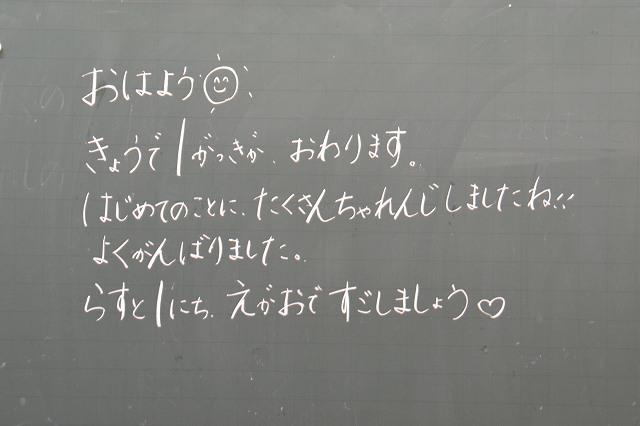 おはよう
きょうで1がっきが、おわります。
はじめてのことに、たくさんちゃれんじしましたね!!
よくがんばりました。
らすと1にち、えがおですごしましょう♡